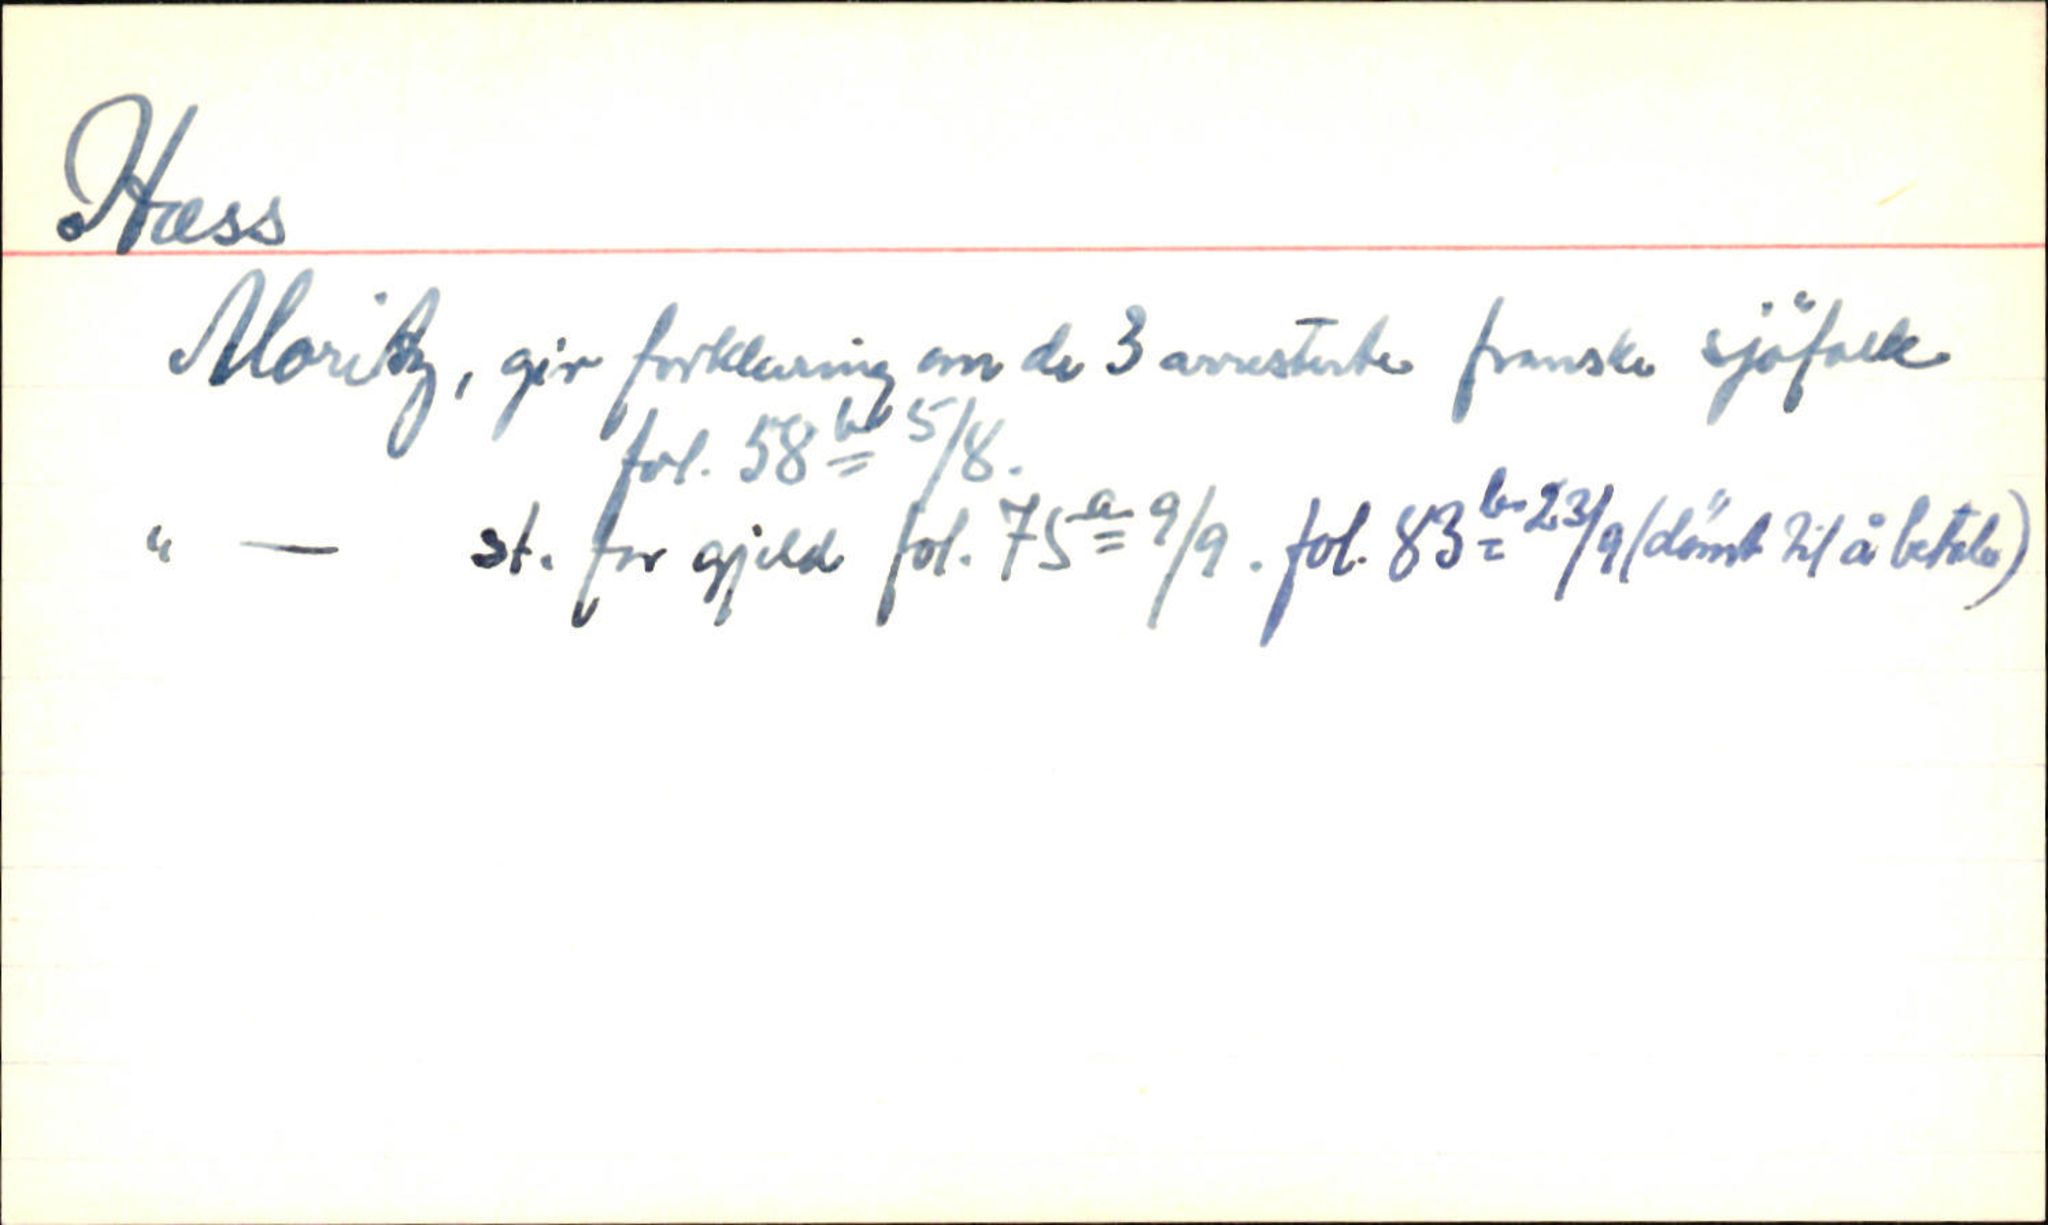 Hæss
Moritz, gir forklaring om de 3 arresterte franske sjöfolk
fol. 58b 5/8.
" — st. for gjeld fol. 75a 9/9. fol. 83b 23/9 (dömt til å betale)